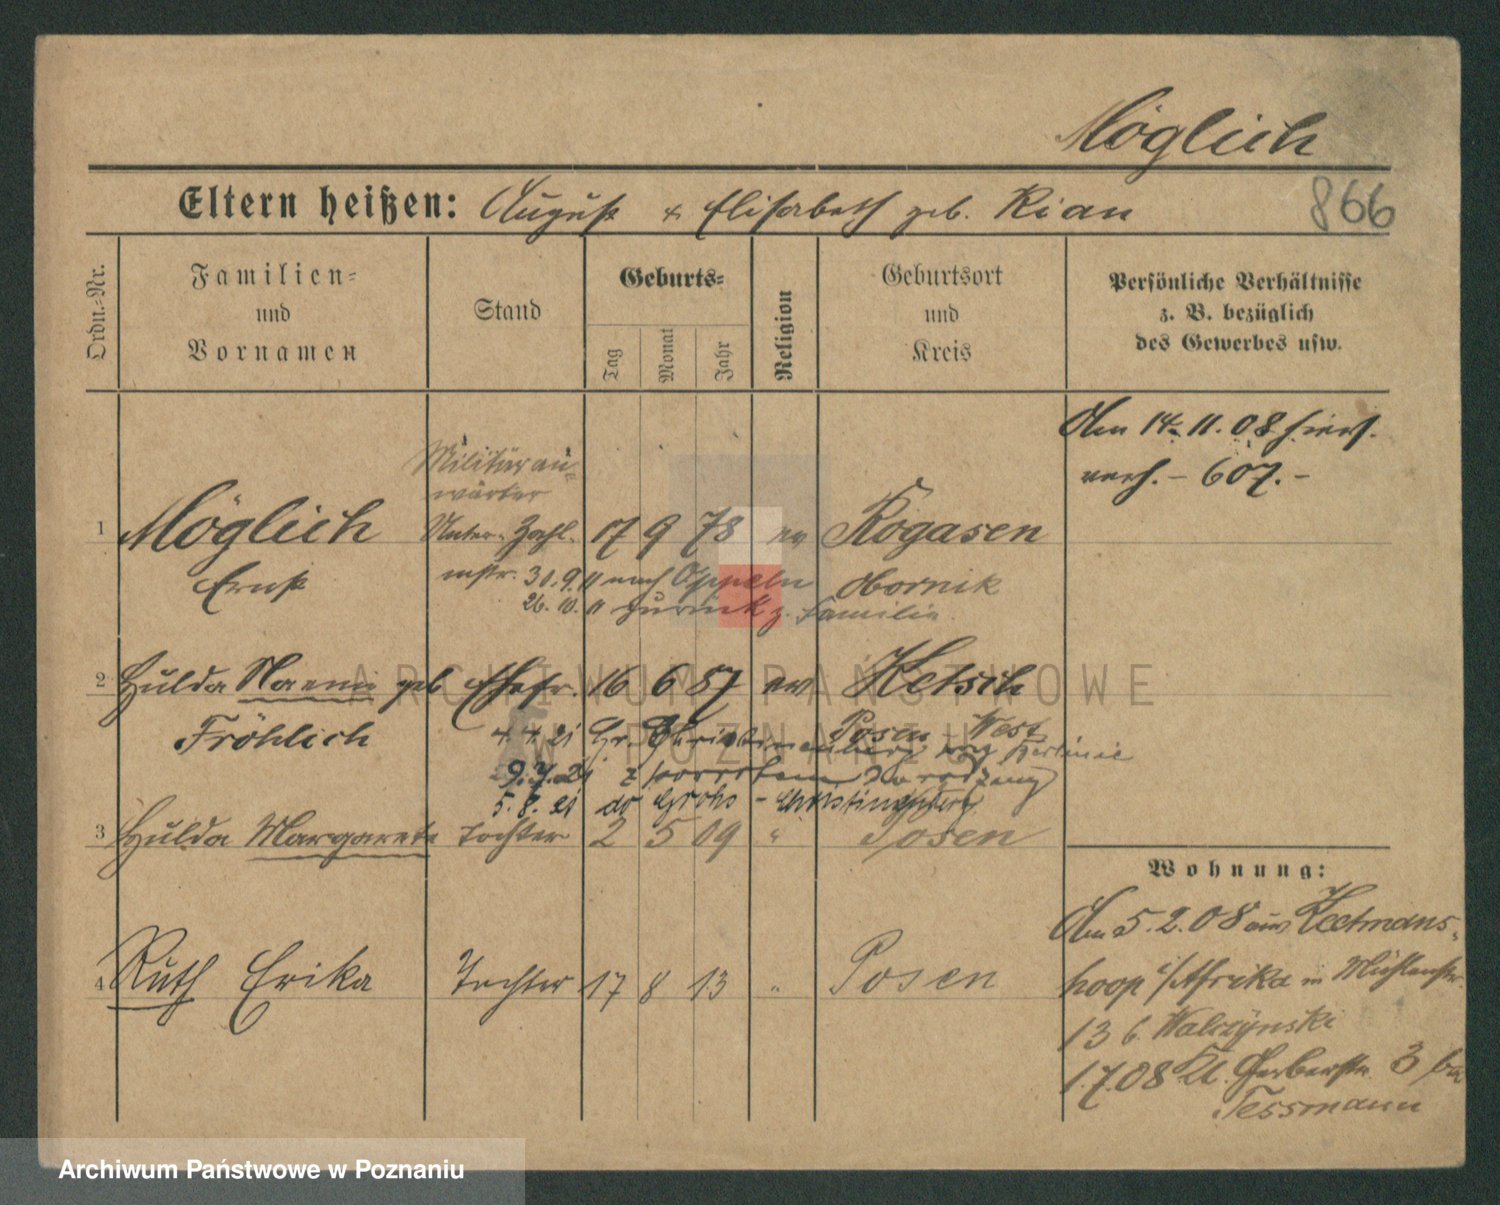 Möglich
Eltern heißen: August & Elisabeth geb. Rian
866
Ordn.-Nr.
Familien-
und
Vornamen
Stand
Geburts-
Tag
Monat
Jahr
Religion
Geburtsort
und
Kreis
Persönliche Verhältnisse
z. B. bezüglich
des Gewerbes usw.
Am 14. 11. 08 hiers.
verh. – 607. –
Militäran-
wärter
1 Möglich Unter-Zahl- 17 9 78 ev Rogasen
Ernst mstr. 30.9.11 nach Oppeln Obornik
26.10.11 zurück z. Familie
2 Hulda Naemi geb Ehefr. 16 6 87 ev Ketsch
Fröhlich Posen West
4.4.21 Gr.
9.7.21
5.8.21 do Grohs - Christinenberg
3 Hulda Margarete Tochter 2 5 09 " Posen
Wohnung:
4 Ruth Erika Tochter 17 8 13 " Posen
Am 5.2.08 aus Keetmans-
hoop i/Afrika in Mühlenstr.
13 b. Walczynski
1.7.08 Kl. Gerberstr. 3 bei
Tessmann
ARCHIWUM PAŃSTWOWE
W POZNANIU
Archiwum Państwowe w Poznaniu